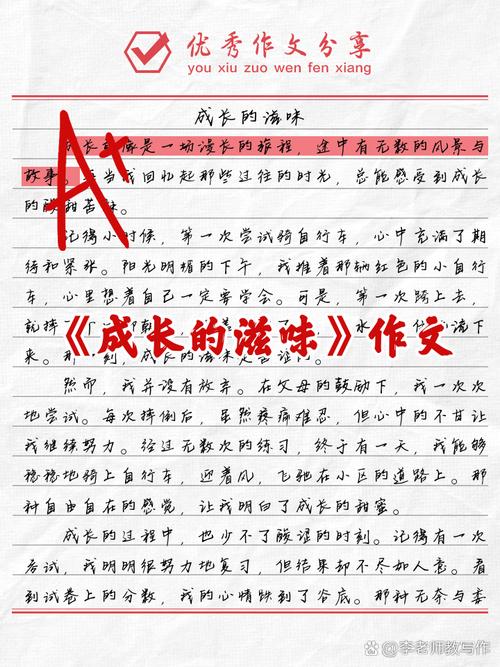 优秀作文分享
you xiu zuo wen fen xiang
成长的滋味
A+
成长 是一场漫长的旅程，途中有无数的风景与
故事。 当我回忆起那些过往的时光，总能感受到成长
的酸甜苦辣。
记得小时候，第一次尝试骑自行车，心中充满了期
待和紧张。阳光明媚的下午，我推着那辆红色的小自行
车，心里想着自己一定要学会。可是，第一次跨上去，
就摔
《成长的滋味》作文
来。那一刻，成长的滋味是苦涩的。
然而，我并没有放弃。在父母的鼓励下，我一次次
地尝试。每次摔倒后，虽然疼痛难忍，但心中的不甘让
我继续努力。经过无数次的练习，终于有一天，我能够
稳稳地骑上自行车，迎着风，飞驰在小区的道路上。那
种自由自在的感觉，让我明白了成长的甜蜜。
成长的过程中，也少不了酸涩的时刻。记得有一次
考试，我明明很努力地复习，但结果却不尽如人意。看
到试卷上的分数，我的心情跌到了谷底。那种无奈与委
李老师教写作